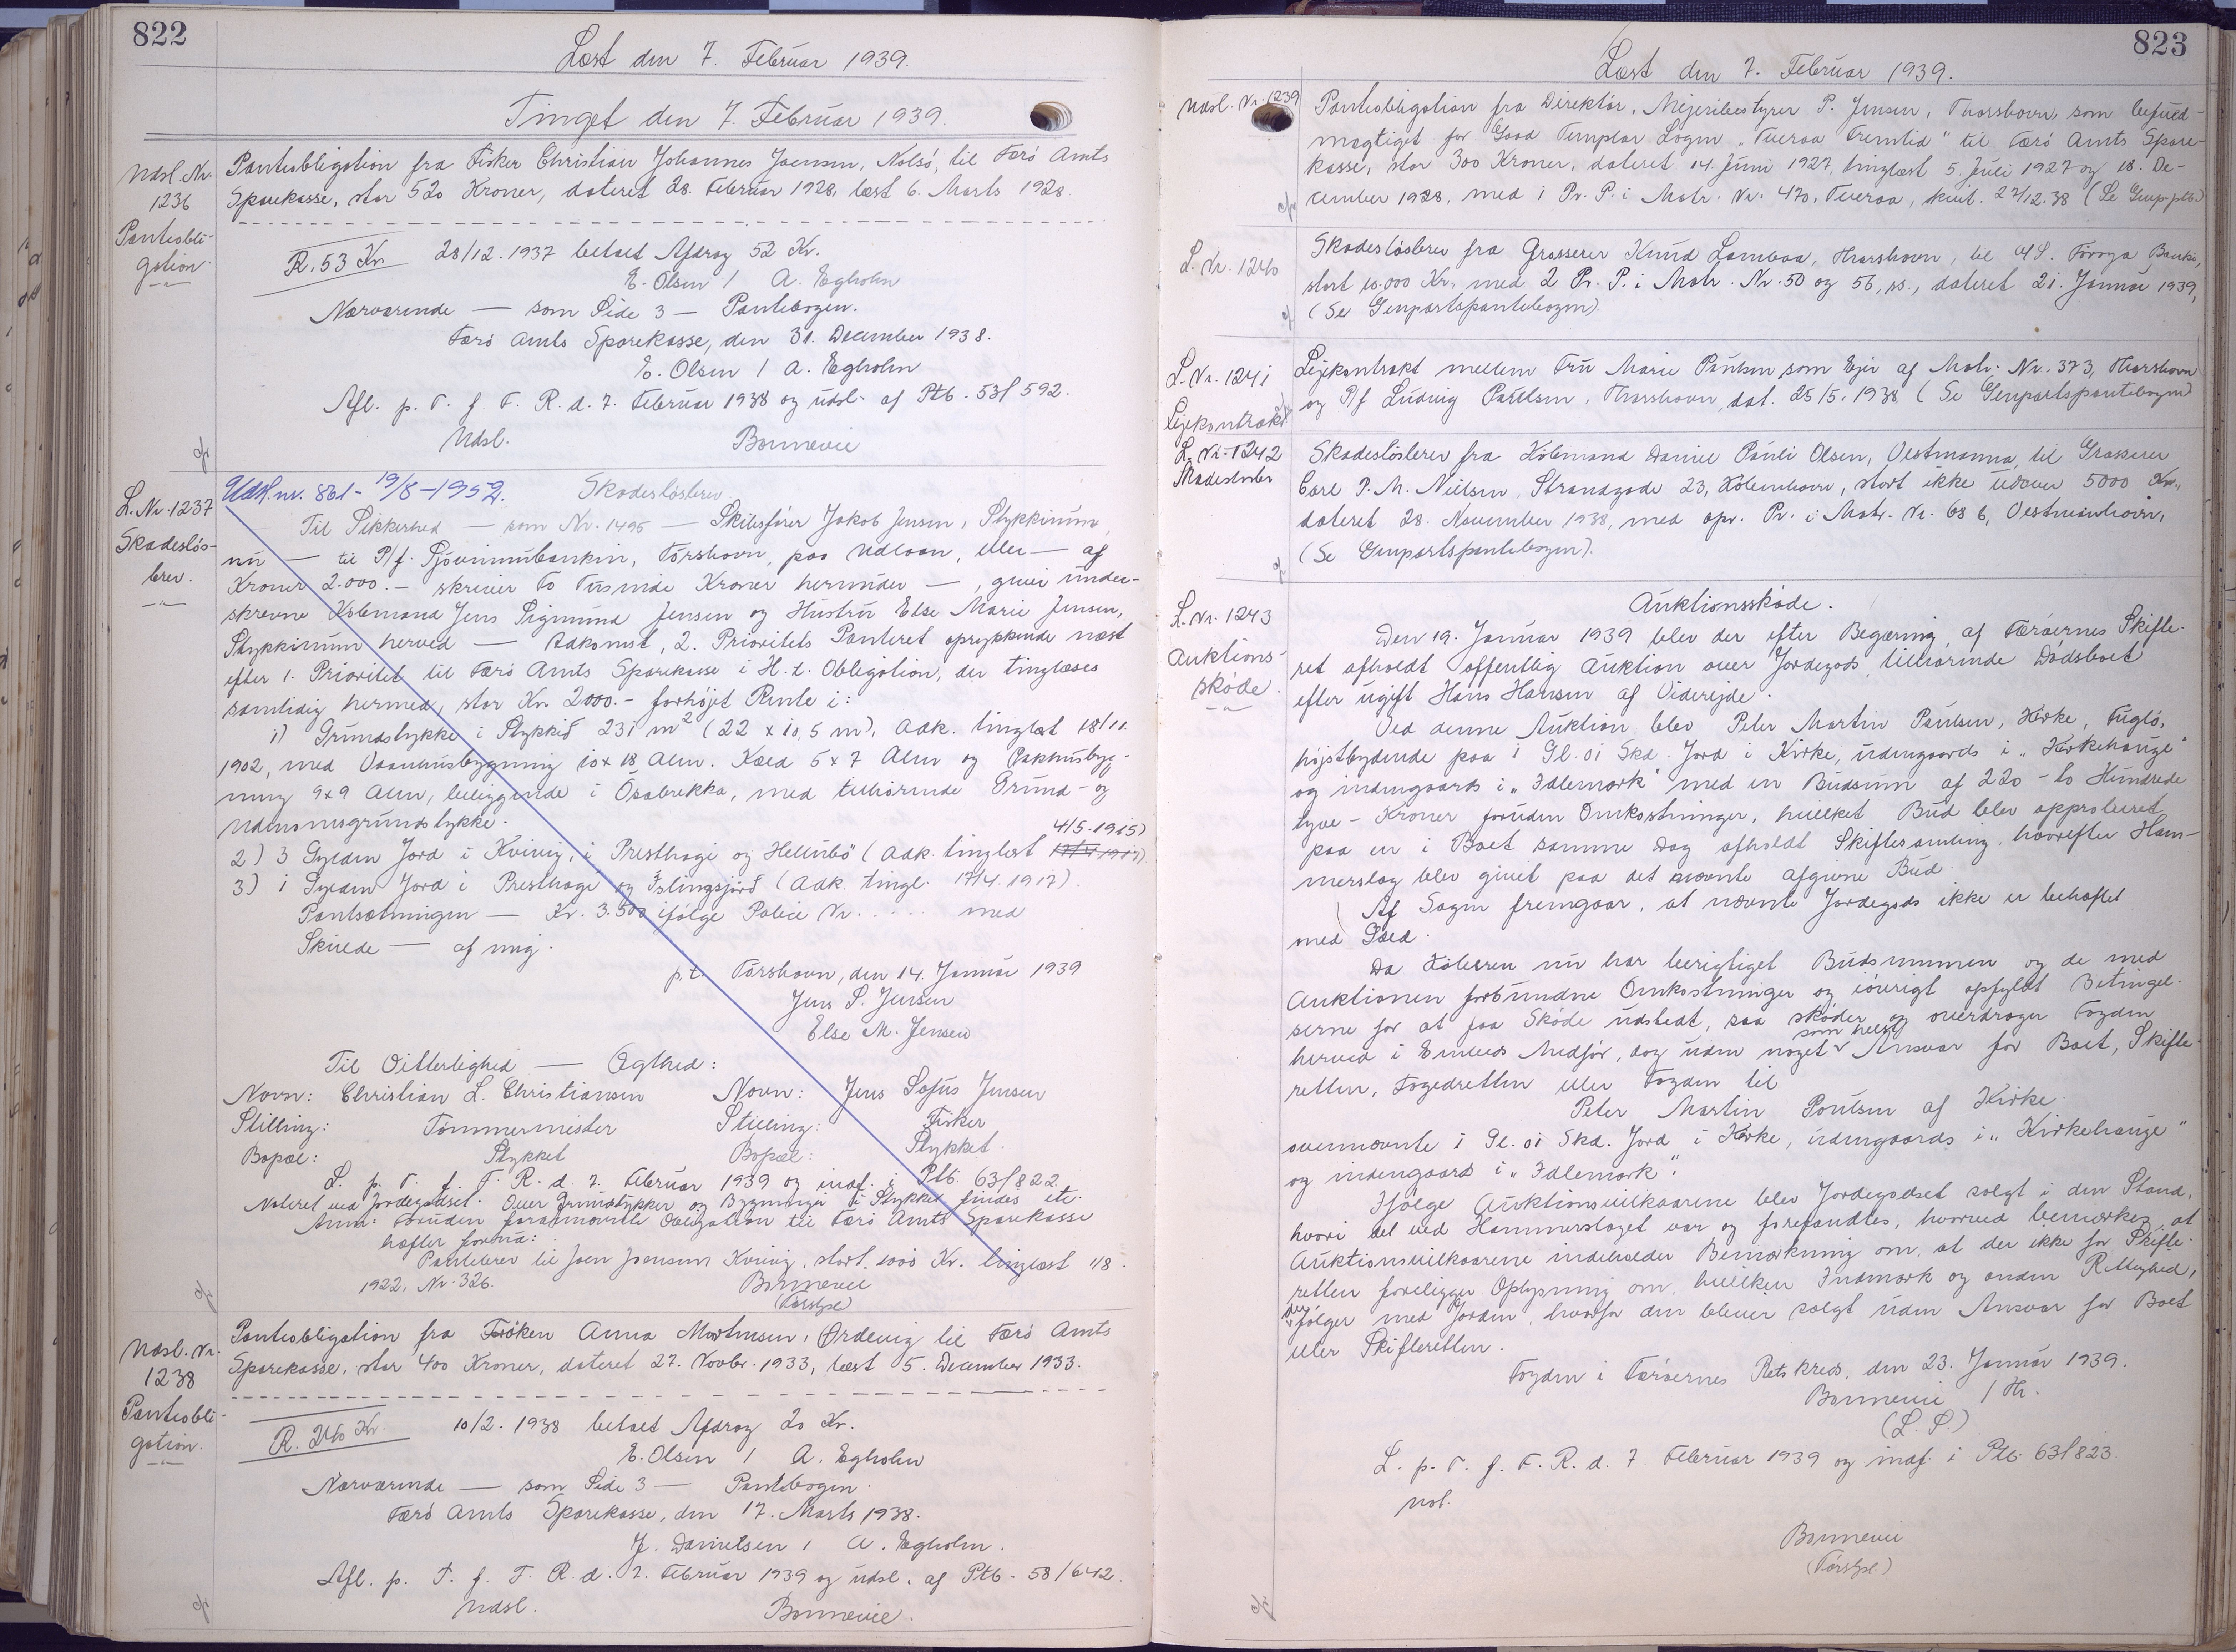 822
Læst den 7. Februar 1939.
Tinget den 7. Februar 1939.
Udsl. Nr. 1236
Pantobli-
gation
Pantobligation fra Fisker Christian Johannes Joensen, Nolsö, til Færö Amts
Sparekasse, stor 520 Kroner, dateret 28. Februar 1928, læst 6. Marts 1928.
R. 53 Kr. 28/12. 1937 betalt Afdrag 52 Kr.
E. Olsen / A. Egholm
Nærværende — som Side 3 — Pantebogen.
Færö Amts Sparekasse, den 31. December 1938.
E. Olsen / A. Egholm
Afl. p. T. f. F. R. d. 7. Februar 1938 og udsl. af Ptb. 53/592.
Udsl. Bonnevie
L. Nr. 1237
Skadeslös-
brev.
Udsl. nr. 861 - 19/8 - 1952. Skadeslösbrev
Til Sikkerhed — som Nr. 1495 — Skibsförer Jakob Jensen, Stykkinum
nu — til P/f. Sjóvinnubankin, Tórshavn, paa Udlaan, eller — af
Kroner 2.000.- skriver to Tusinde Kroner herunder —, giver under-
skrevne Købmand Jens Sigmund Jensen og Hustru Else Marie Jensen,
Stykkinum herved — Adkomst, 2. Prioritets Panteret oprykkende næst
efter 1. Prioritet til Færö Amts Sparekasse i H. t. Obligation, der tinglæses
samtidig hermed, stor Kr. 2000.- forhöjet Rente i:
1) Grundstykke i Stykkið 231 m² (22 x 10,5 m), Adk. tinglæst 18/11.
1902, med Vaaningsbygning 10 x 18 Alen. Kæld 5 x 7 Alen og Pakhusbyg-
ning 9 x 9 Alen, beliggende i Ósabrekka, med tilhörende Grund- og
Udenomsgrundstykke.
2) 3 Gylden Jord i Kvivig, i Presthagi og Hellubö (Adk. tinglæst 4/5. 1915)
3) 1 Gylden Jord i Presthagi og Islingsjörð (Adk. tingl. 17/4. 1917).
Pantsætningen — Kr. 3.500 ifölge Police Nr. ..... med
Skivede — af mig.
p.t. Tórshavn, den 14. Januar 1939
Jens S. Jensen
Else M. Jensen
Til Vitterlighed — Ægthed:
Navn: Christian L. Christiansen Navn: Jens Sofus Jensen
Stilling: Tömmermester Stilling: Fisker
Bopæl: Stykket Bopæl: Stykket.
L. p. T. f. F. R. d. 7. Februar 1939 og indf. i Ptb. 63/822
Noteret ved Jordegodset. Over Grundstykker og Bygninger i Stykket findes ete.
Anm: Foruden forannævnte Obligation til Færö Amts Sparekasse
hæfter forud:
Pantebrev til Joen Joensen Kvivig, stort 1000 Kr. tinglæst 1/8.
1922, Nr. 326. Bonnevie
(Förstgl.)
Udsl. Nr.
1238
Pantobli-
gation.
Pantobligation fra Fröken Anna Mortensen, Ördevig til Færö Amts
Sparekasse, stor 400 Kroner, dateret 27. Novbr. 1933, læst 5. December 1933.
R. 240 Kr. 10/2. 1938 betalt Afdrag 20 Kr.
E. Olsen / A. Egholm
Nærværende — som Side 3 — Pantebogen.
Færö Amts Sparekasse, den 17. Marts 1938.
J. Danielsen / A. Egholm.
Afl. p. T. f. F. R. d. 7. Februar 1939 og udsl. af Ptb. 58/642.
Udsl. Bonnevie.
823
Læst den 7. Februar 1939.
Udsl. Nr. 1239
Pantobligation fra Direktör, Mejeribestyrer P. Jensen, Thorshavn, som befuld-
mægtiget for Good Templar Logen "Tveraa Fremtid" til Færö Amts Spare-
kasse, stor 300 Kroner, dateret 14. Juni 1927, tinglæst 5. Juli 1927 og 18. De-
cember 1928, med 1 Pr. P. i Matr. Nr. 470, Tveraa, kvit. 27/12.38 (Se Genp.ptb.)
L. Nr. 1240
Skadeslösbrev fra Grosserer Knud Lamhaa, Thorshavn, til A/S. Föroya Banki,
stort 10.000 Kr. med 2 Pr. P. i Matr. Nr. 50 og 56, ss., dateret 21. Januar 1939,
(Se Genpartspantebogen)
L. Nr. 1241
Lejekontrakt
Lejekontrakt mellem Fru Marie Paulsen som Ejer af Matr. Nr. 373, Thorshavn
og P/f Ludvig Poulsen, Thorshavn, dat. 25/5. 1938 (Se Genpartspantebogen)
L. Nr. 1242
Skadeslösbr
Skadeslösbrev fra Köbmand Daniel Pauli Olsen, Vestmanna, til Grosserer
Carl P. M. Nielsen, Strandgade 23, Köbenhavn, stort ikke udover 5000 Kr.,
dateret 28. November 1938, med opr. Pr. i Matr. Nr. 68 b, Vestmanhavn,
(Se Genpartspantebogen).
L. Nr. 1243
Auktions-
sköde.
Auktionssköde.
Den 19. Januar 1939 blev der efter Begæring af Færöernes Skifte-
ret afholdt offentlig Auktion over Jordegods tilhörende Dödsboet
efter ugift Hans Hansen af Viderejde.
Ved denne Auktion blev Peter Martin Paulsen, Kirke, Fuglö,
höjstbydende paa 1 Gl. 01 Skd. Jord i Kirke, udengaards i "Kirkehauge"
og indengaards i "Idlemork" med en Budsum af 220 - to Hundrede
tyve - Kroner foruden Omkostninger, hvilket Bud blev approberet
paa en i Boet samme Dag afholdt Skiftesamling, hvorefter Ham-
merslag blev givet paa det nævnte afgivne Bud.
Af Sagen fremgaar, at nævnte Jordegods ikke er behæftet
med Gæld.
Da Köberen nu har berigtiget Budsummen og de med
Auktionen forbundne Omkostninger og iövrigt opfyldt Betingel-
serne for at faa Sköde udstedt, saa sköder og overdrager Fogden
herved i Embeds Medför, dog uden noget som helst Ansvar for Boet, Skifte-
retten, Fogedretten eller Fogden til
Peter Martin Poulsen af Kirke
ovennævnte 1 Gl. 01 Skd. Jord i Kirke, udengaards i "Kirkehauge"
og indengaards i "Idlemork".
Ifölge Auktionsvilkaarene blev Jordegodset solgt i den Stand,
hvori det ved Hammerslaget var og forefandtes, hvorved bemærkes, at
Auktionsvilkaarene indeholder Bemærkning om, at der ikke for Skifte-
retten foreligger Oplysning om, hvilken Indmark og anden Rettighed,
der fölger med Jorden, hvorfor den bliver solgt uden Ansvar for Boet
eller Skifteretten.
Fogden i Færöernes Retskreds, den 23. Januar 1939.
Bonnevie / Th.
(L. S.)
L. p. T. f. F. R. d. 7 Februar 1939 og indf. i Ptb. 63/823
not.
Bonnevie
(Förstgl.)